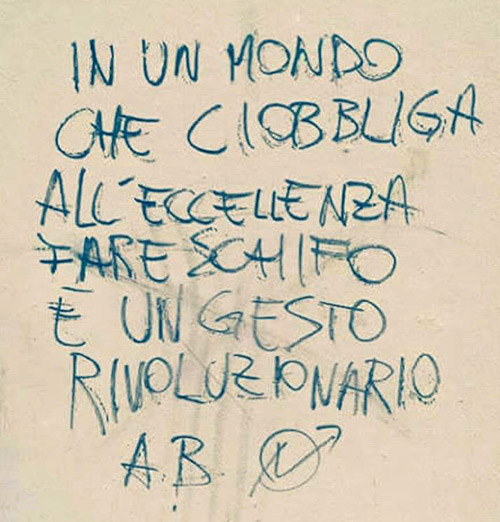 IN UN MONDO
CHE CIOBBLIGA
ALL'ECCELLENZA
FARE SCHIFO
È UN GESTO
RIVOLUZIONARIO
A.B